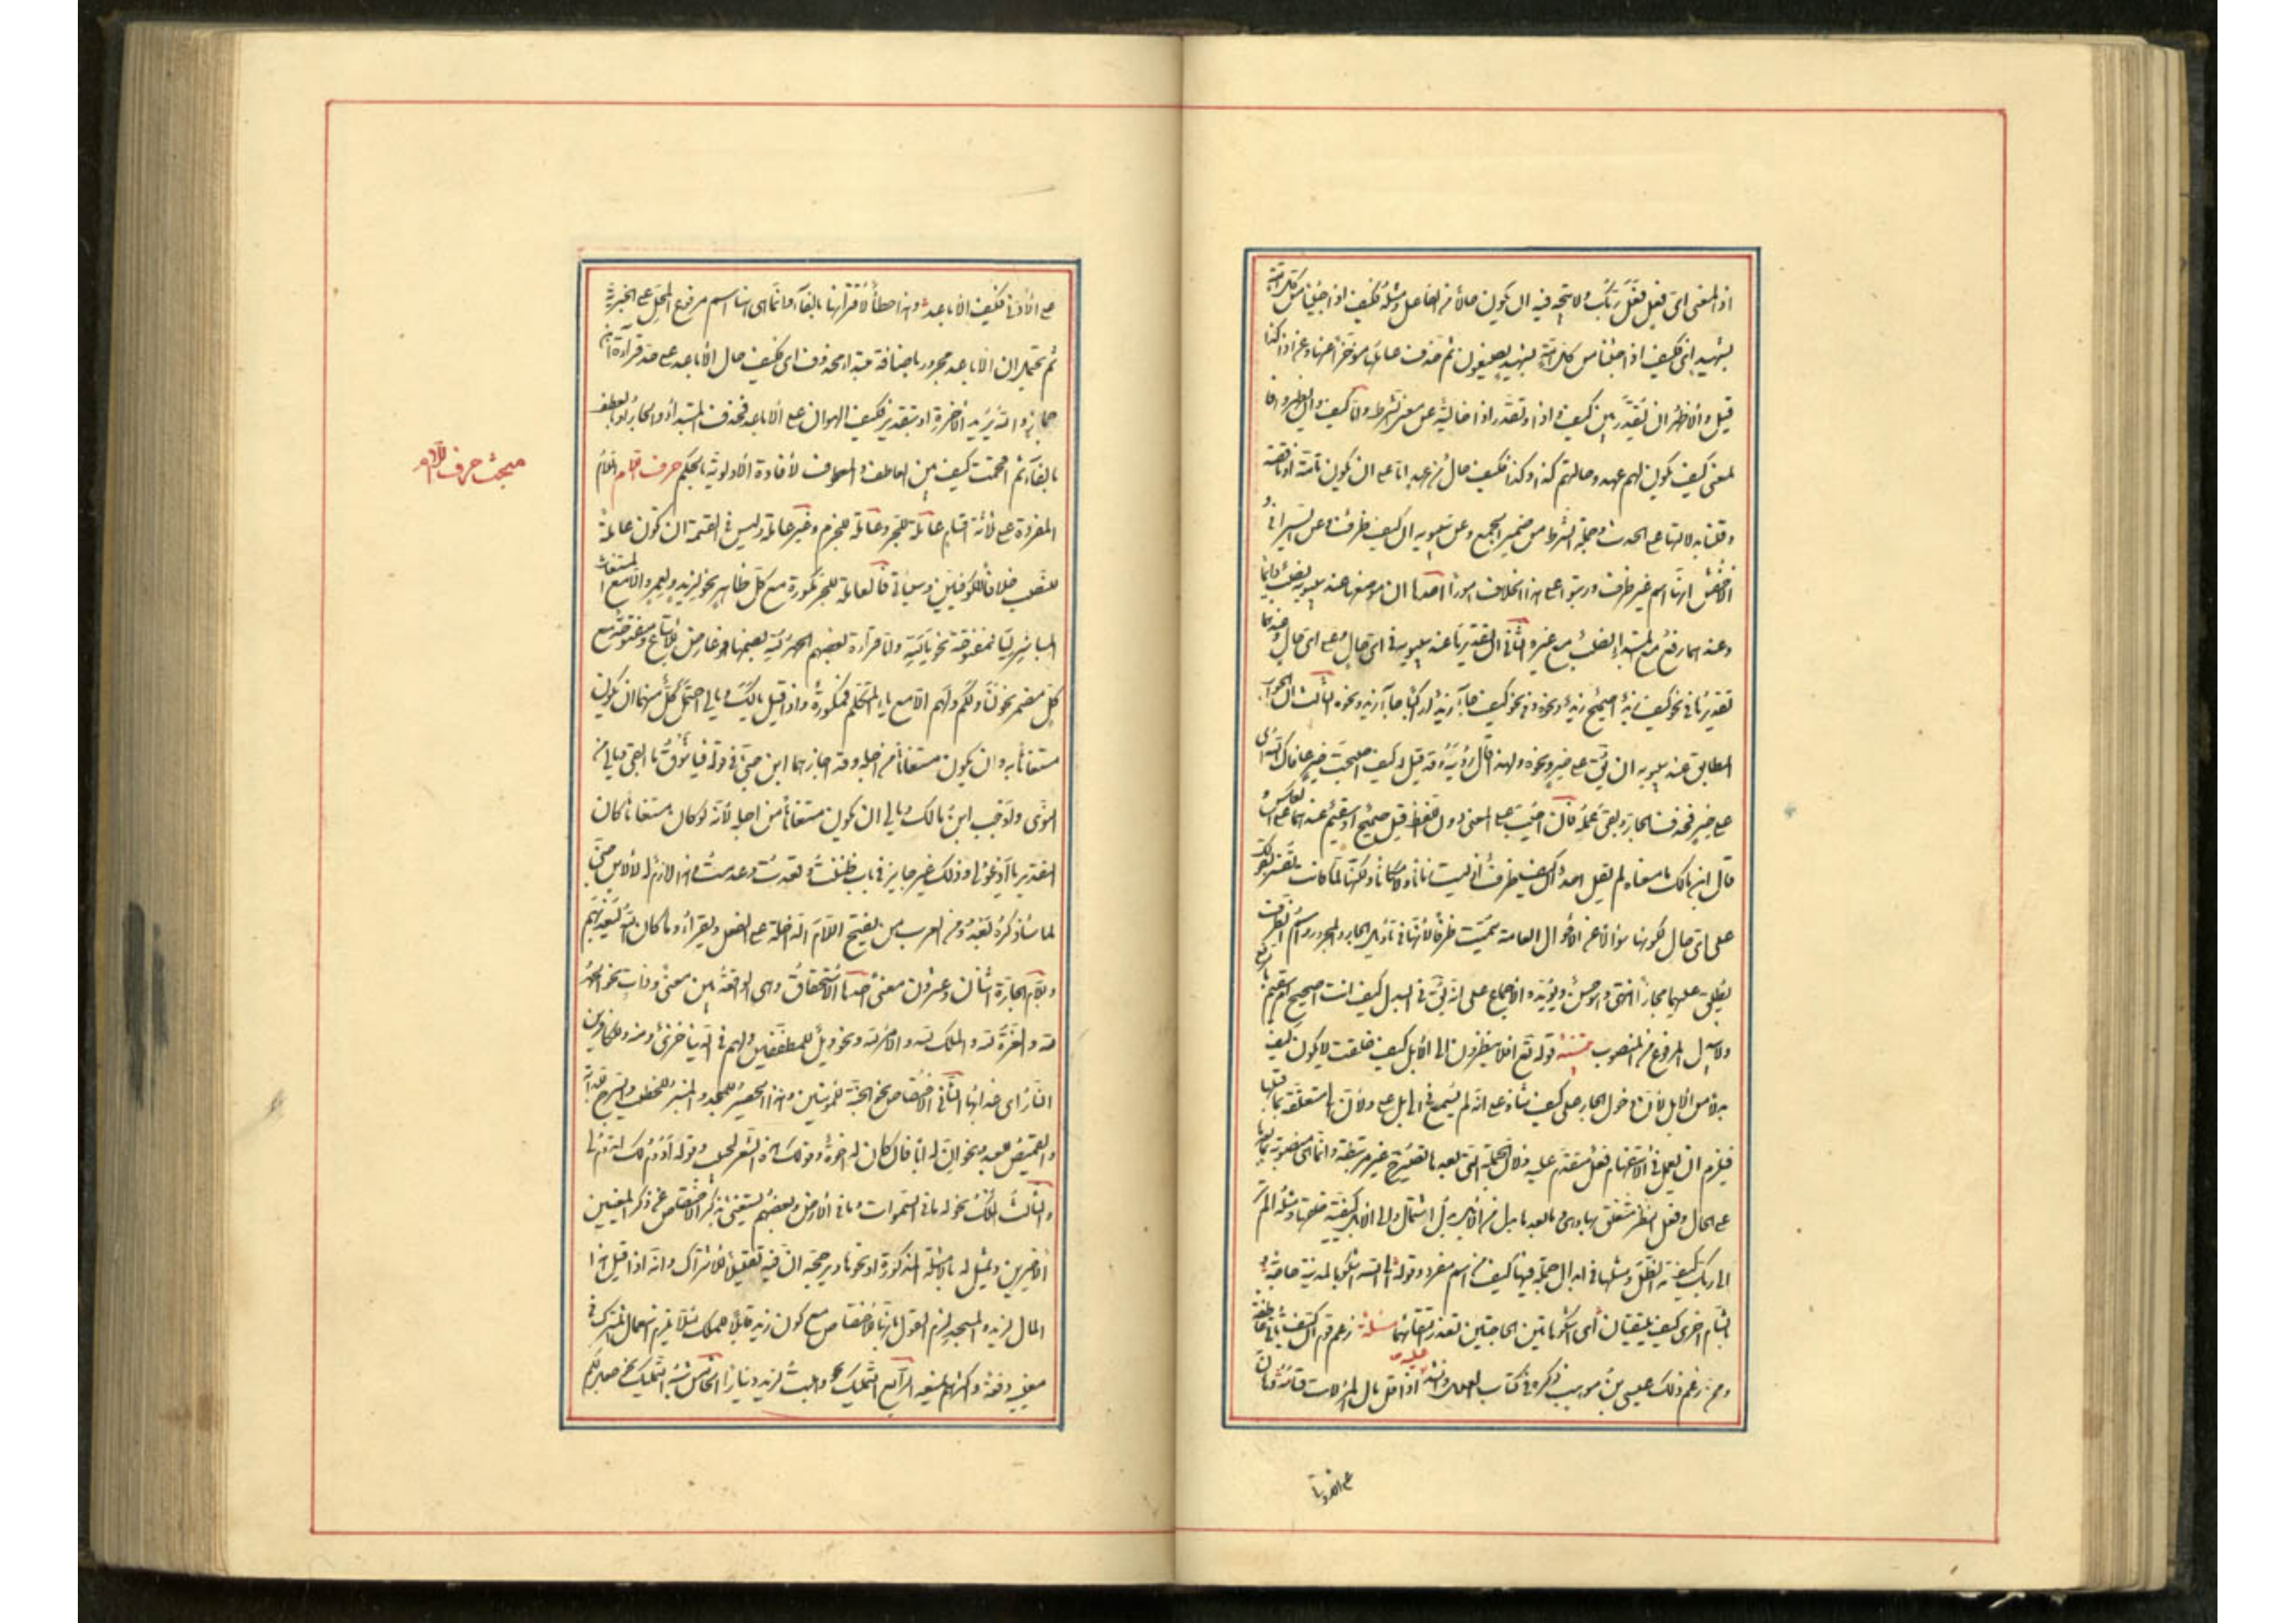 اذ المعنى اى فعل فعل ربك ولا يتجه فيه ان يكون حالا من الفاعل ومثله فكيف اذا جئنا من كل امة
بشهيد اى فكيف اذا جئنا من كل امة بشهيد يصنعون ثم حذف عاملها مؤخرا عنها وعن اذا كذا
قيل والاظهر ان يقدر بين كيف واذا وتقدر اذا خالية عن معنى الشرط واما كيف وان يظهروا فا
لمعنى كيف يكون لهم عهد وحالهم كذا وكذا فكيف حال من عهد اما على ان يكون تامة او ناقصة
وقلنا بدلالتها على الحدث وجملة الشرط من ضمير الجمع وعن سيبويه ان كيف ظرف وعن السيرافى و
الاخفش انها اسم غير ظرف ورتبوا على هذا الخلاف امورا احدها ان موضعها عند سيبويه نصب دائما
وعندهما رفع مع المبتدا نصب مع غيره الثانى ان تقديرها عند سيبويه فى اى حال او على اى حال وعندهما
تقديرها فى نحو كيف زيد اصحيح زيد ونحوه وفى نحو كيف جاء زيد اراكبا جاء زيد ونحوه الثالث ان الجواب
المطابق عند سيبويه ان يق على خير ونحوه ولهذا قال رؤبة وقد قيل له كيف اصبحت خير عافاك الله اى
على خير فحذف الجار وبقى عمله فان اجيب على المعنى دون اللفظ قيل صحيح او سقيم عندهما على العكس و
قال ابن مالك ما معناه لم يقل احد ان كيف ظرف اذ ليست زمانا ولا مكانا ولكنها لما كانت تفسر بقولك
على اى حال لكونها سؤالا عن الاحوال العامة سميت ظرفا لانها فى تأويل الجار والمجرور واسم الظرف
يطلق عليهما مجازا انتهى وهو حسن ويؤيده الاجماع على انه يق فى البدل كيف انت اصحيح ام سقيم بالرفع
ولا يبدل المرفوع من المنصوب تنبيه قوله تع افلا ينظرون الى الابل كيف خلقت لا يكون كيف
بدلا من الابل لان دخول الجار على كيف شاذ على انه لم يسمع فى الى بل على ولان الى متعلقة بما قبلها
فيلزم ان يعمل فى الاستفهام فعل متقدم عليه ولان الجملة التى بعدها تصير ح غير مرتبطة وانما هى منصوبة بما بعدها
على الحال وفعل النظر متعلق بها وهى وما بعدها بدل من الابل بدل اشتمال والى الابل كيفية خلقها ومثله الم تر
الى ربك كيف مد الظل ومثلها فى ابدال جملة فيها كيف من اسم مفرد وقوله الى الله اشكو بالمدينة حاجة و
بالشام اخرى كيف يلتقيان اى اشكو هاتين الحاجتين تعذر التقائهما مسئلة زعم قوم ان كيف تأتى عاطفة
وممن زعم ذلك عيسى بن موهب ذكره فى كتاب العلل وانشد عليه اذا قل مال المرء لانت قناته وهان
على الادنى
على الادنى فكيف الاباعد وهذا خطأ لاقترانها بالفاء وانما هى هنا اسم مرفوع المحل على الخبرية
ثم يحتمل ان الاباعد مجرور باضافة مبتدا محذوف اى فكيف حال الاباعد على حد قراءة ابن
جماز والله يريد الاخرة او بتقدير فكيف الهوان على الاباعد فحذف المبتدا والجار او بالعطف
بالفاء ثم اقحمت كيف بين العاطف والمعطوف لافادة الاولوية بالحكم حرف اللام اللام
المفردة على ثلثة اقسام عاملة للجر وعاملة للجزم وغير عاملة وليس فى القسمة ان تكون عاملة
للنصب خلافا للكوفيين وسيأتى فالعاملة للجر مكسورة مع كل ظاهر نحو لزيد ولعمرو الا مع المستغاث
المباشر ليا فمفتوحة نحو يا لله واما قراءة بعضهم الحمد لله بضمها فهو عارض للاتباع ومفتوحة مع
كل مضمر نحو لنا ولكم ولهم الا مع ياء المتكلم فمكسورة واذا قيل يا لك ويا لى احتمل كل منهما ان يكون
مستغاثا به وان يكون مستغاثا من اجله وقد اجازهما ابن جنى فى قوله فيا شوق ما ابقى ويا لى من
النوى ولوجب ابن مالك ويا لى ان يكون مستغاثا من اجله لانه لو كان مستغاثا كان
التقدير يا ادعو لى وذلك غير جايز فى باب ظننت وفقدت وعدمت وهذا لازم له لا لابن جنى
لما سأذكره بعد ومن العرب من يفتح اللام الداخلة على الفعل ويقراء وما كان الله ليعذبهم
وللام الجارة اثنان وعشرون معنى احدها الاستحقاق وهى الواقعة بين معنى وذات نحو الحمد
لله والعزة لله والملك لله والامر لله ونحو ويل للمطففين ولهم فى الدنيا خزى ومنه وللكافرين
النار اى عذابها الثانى الاختصاص نحو الجنة للمؤمنين وهذا الحصير للمسجد والمنبر للخطيب والسرج للدابة
والقميص للعبد ونحو ان له ابا فان كان له اخوة وقولك هذا الشعر لحبيب وقوله ادوم لك ما تدوم لى
والثالث الملك نحو له ما فى السموات وما فى الارض وبعضهم يستغنى بذكر الاختصاص عن ذكر المعنيين
الاخيرين ويمثل له بالامثلة المذكورة او نحوها ويرجحه ان فيه تقليلا للاشتراك وانه اذا قيل هذا
المال لزيد والمسجد لزم القول بانها للاختصاص مع كون زيد قابلا للملك لئلا يلزم استعمال المشترك فى
معنييه دفعة واكثرهم يمنعه الرابع التمليك نحو وهبت لزيد دينارا الخامس شبه التمليك نحو جعل لكم
مبحث حرف اللام